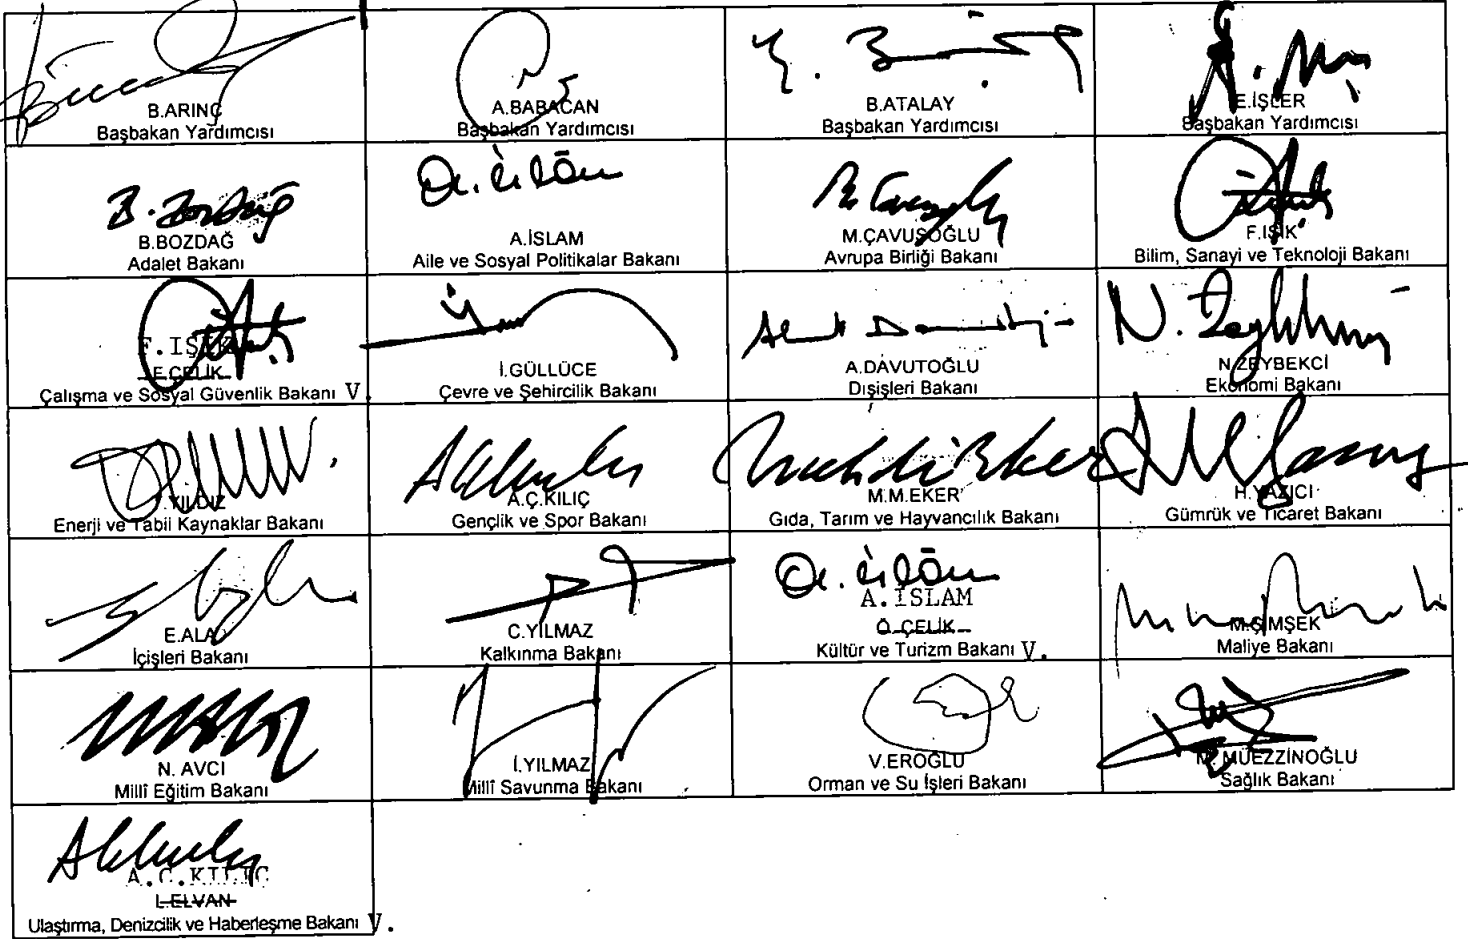 B.ARINÇ
Başbakan Yardımcısı
A.BABACAN
Başbakan Yardımcısı
B.ATALAY
Başbakan Yardımcısı
E.İŞLER
Başbakan Yardımcısı
B. Bozdağ
B.BOZDAĞ
Adalet Bakanı
A.İSLAM
Aile ve Sosyal Politikalar Bakanı
M.ÇAVUŞOĞLU
Avrupa Birliği Bakanı
F.IŞIK
Bilim, Sanayi ve Teknoloji Bakanı
F.IŞIK
F.ÇELİK
Çalışma ve Sosyal Güvenlik Bakanı V.
İ.GÜLLÜCE
Çevre ve Şehircilik Bakanı
A.DAVUTOĞLU
Dışişleri Bakanı
N. Zeybekci
N.ZEYBEKCİ
Ekonomi Bakanı
YILDIZ
Enerji ve Tabii Kaynaklar Bakanı
A.Ç.KILIÇ
Gençlik ve Spor Bakanı
Mehdi Eker
M.M.EKER
Gıda, Tarım ve Hayvancılık Bakanı
H.YAZICI
Gümrük ve Ticaret Bakanı
E.ALA
İçişleri Bakanı
C.YILMAZ
Kalkınma Bakanı
A.İSLAM
Ö.ÇELİK
Kültür ve Turizm Bakanı V.
M.ŞİMŞEK
Maliye Bakanı
N. AVCI
Millî Eğitim Bakanı
İ.YILMAZ
Millî Savunma Bakanı
V.EROĞLU
Orman ve Su İşleri Bakanı
M.MÜEZZİNOĞLU
Sağlık Bakanı
A.Ç.KILIÇ
L.ELVAN
Ulaştırma, Denizcilik ve Haberleşme Bakanı V.